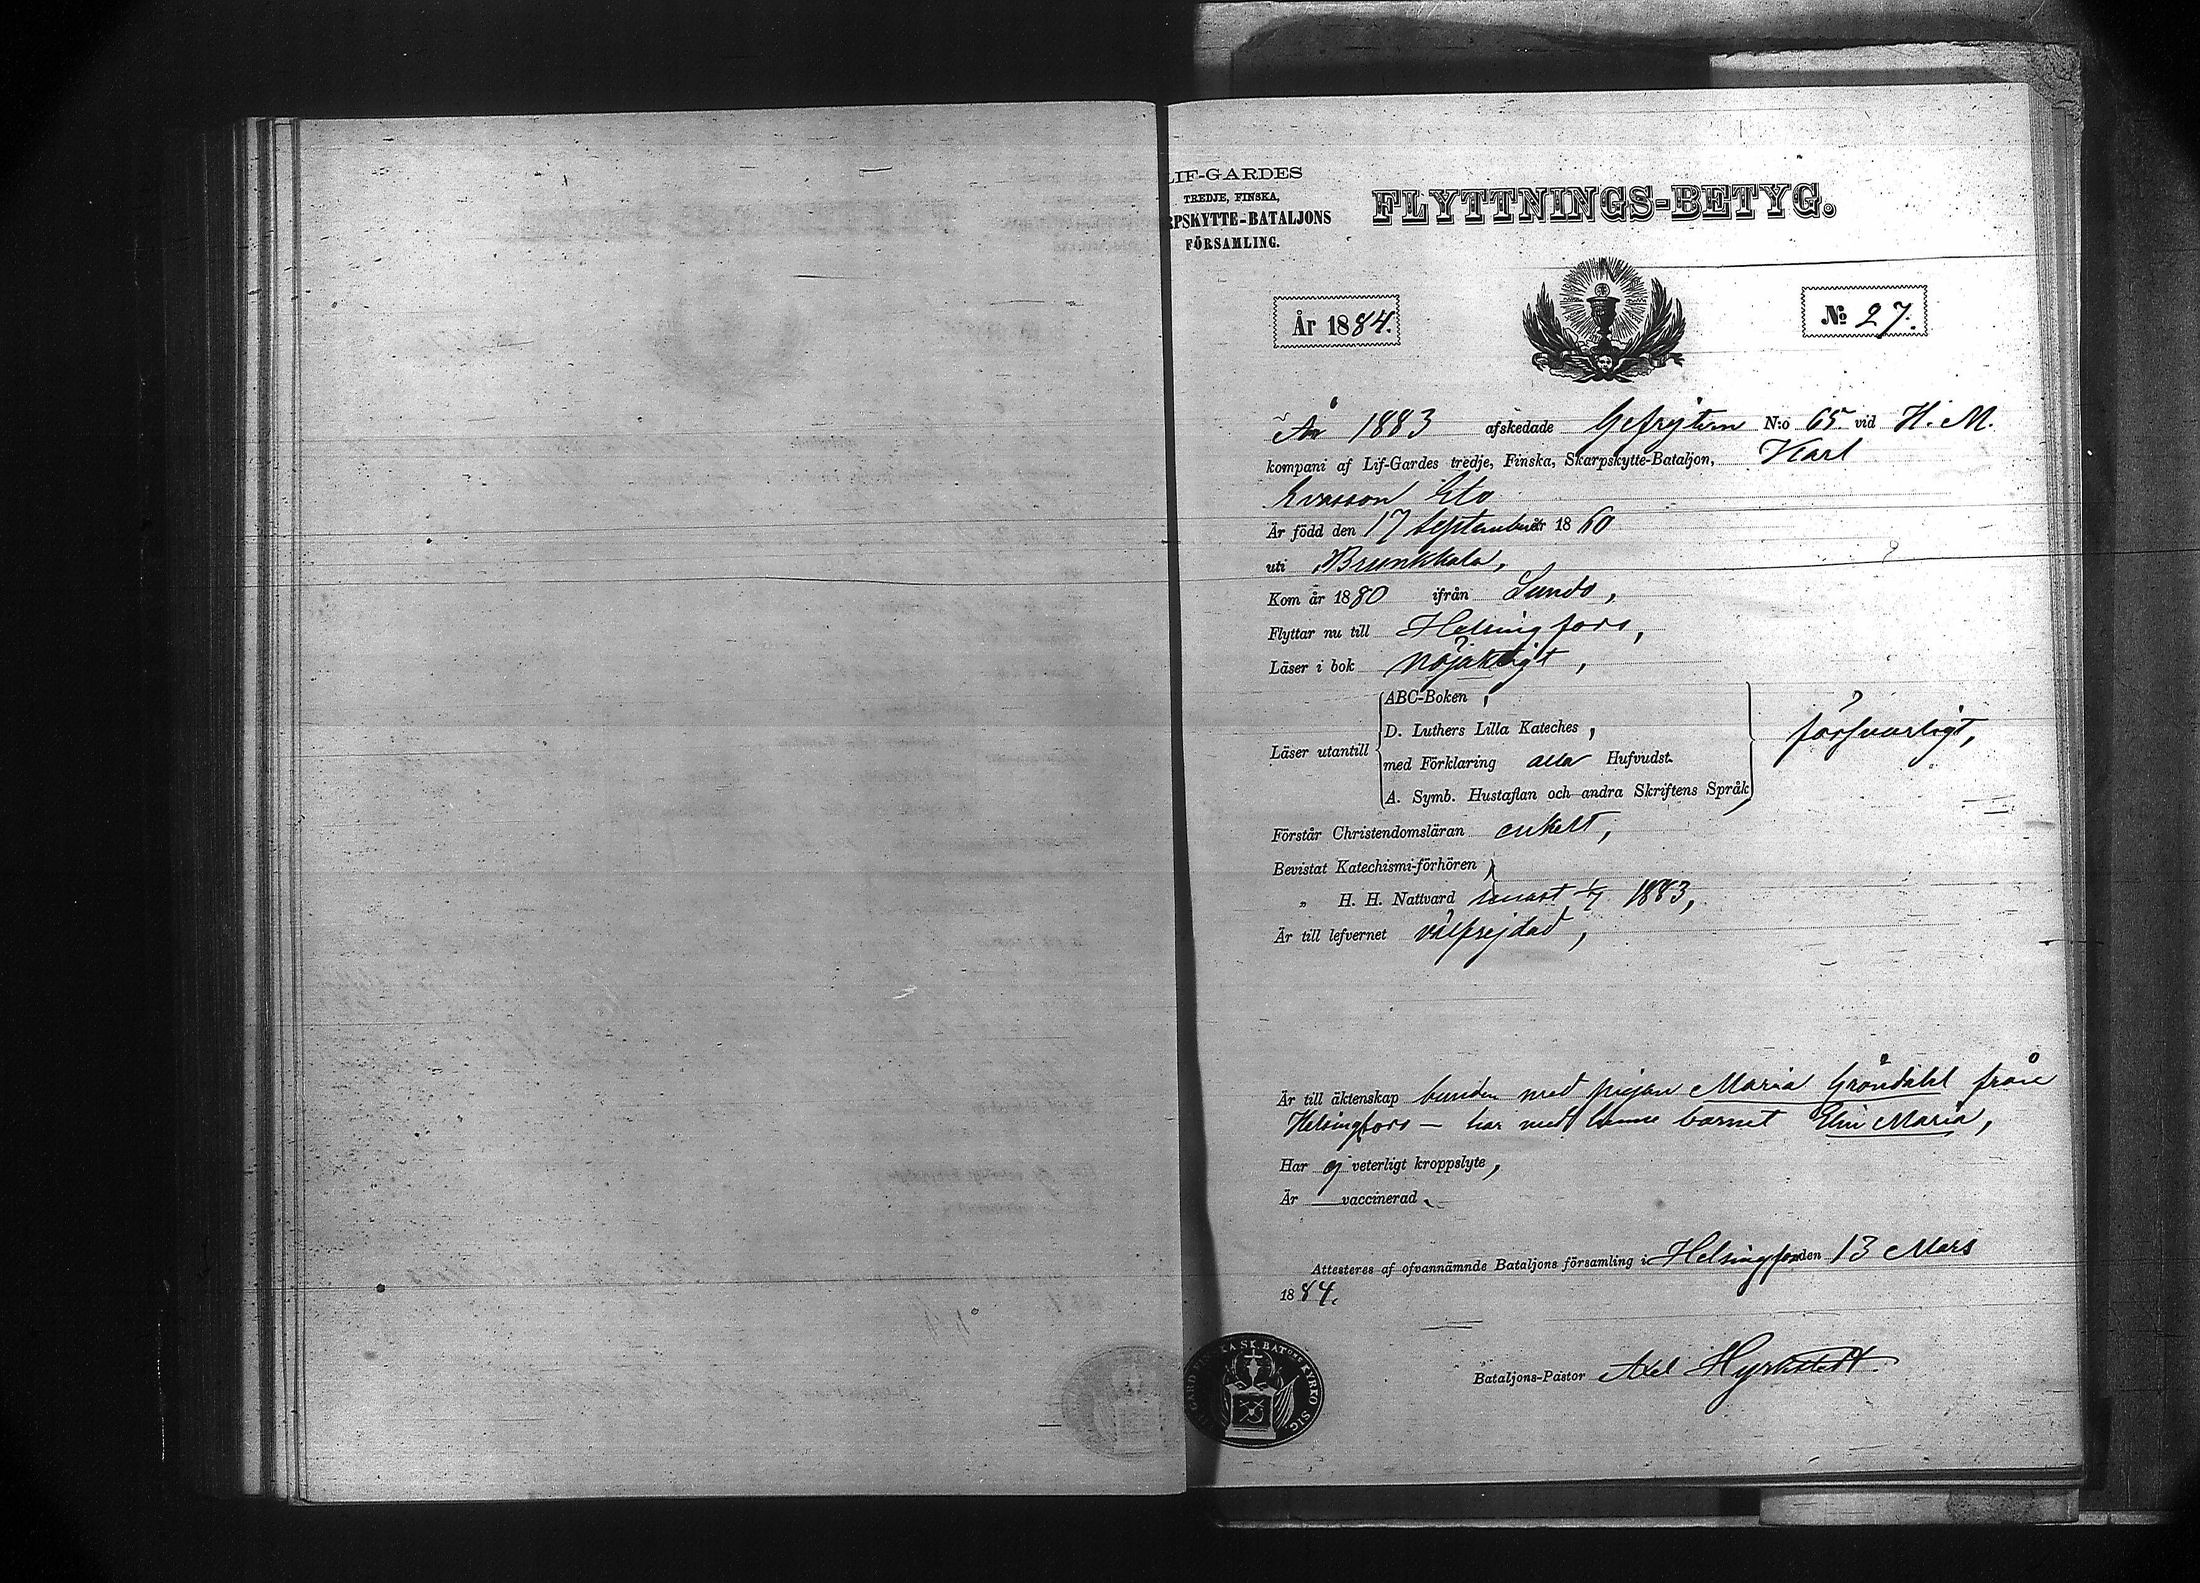 LIF-GARDES
TREDJE, FINSKA,
RPSKYTTE-BATALJONS
FÖRSAMLING.
FLYTTNINGS-BETYG.
År 1884.
№ 27.
År 1883 afskedade Gefrejten N:o 65 vid H. M.
kompani af Lif-Gardes tredje, Finska, Skarpskytte-Bataljon, Karl
Evasson Elo
Är född den 17 September år 1860
uti Brunkkala,
Kom år 1880 ifrån Lundo,
Flyttar nu till Helsingfors,
Läser i bok nöjaktigt,
Läser utantill
ABC-Boken,
D. Luthers Lilla Kateches,
med Förklaring alla Hufvudst.
A. Symb. Hustaflan och andra Skriftens Språk
försvarligt,
Förstår Christendomsläran enkelt,
Bevistat Katechismi-förhören,
„ H. H. Nattvard senast 1/7 1883,
Är till lefvernet välfrejdad,
Är till äktenskap bunden med pigan Maria Gröndahl från
Helsingfors — har med henne barnet Elin Maria,
Har ej veterligt kroppslyte,
Är — vaccinerad.
Attesteras af ofvannämnde Bataljons församling i Helsingfors den 13 Mars
1884.
Bataljons-Pastor Axel Hyrkstedt.
GARD. FINSKA SK. BAT:ONS KYRKO SIG.